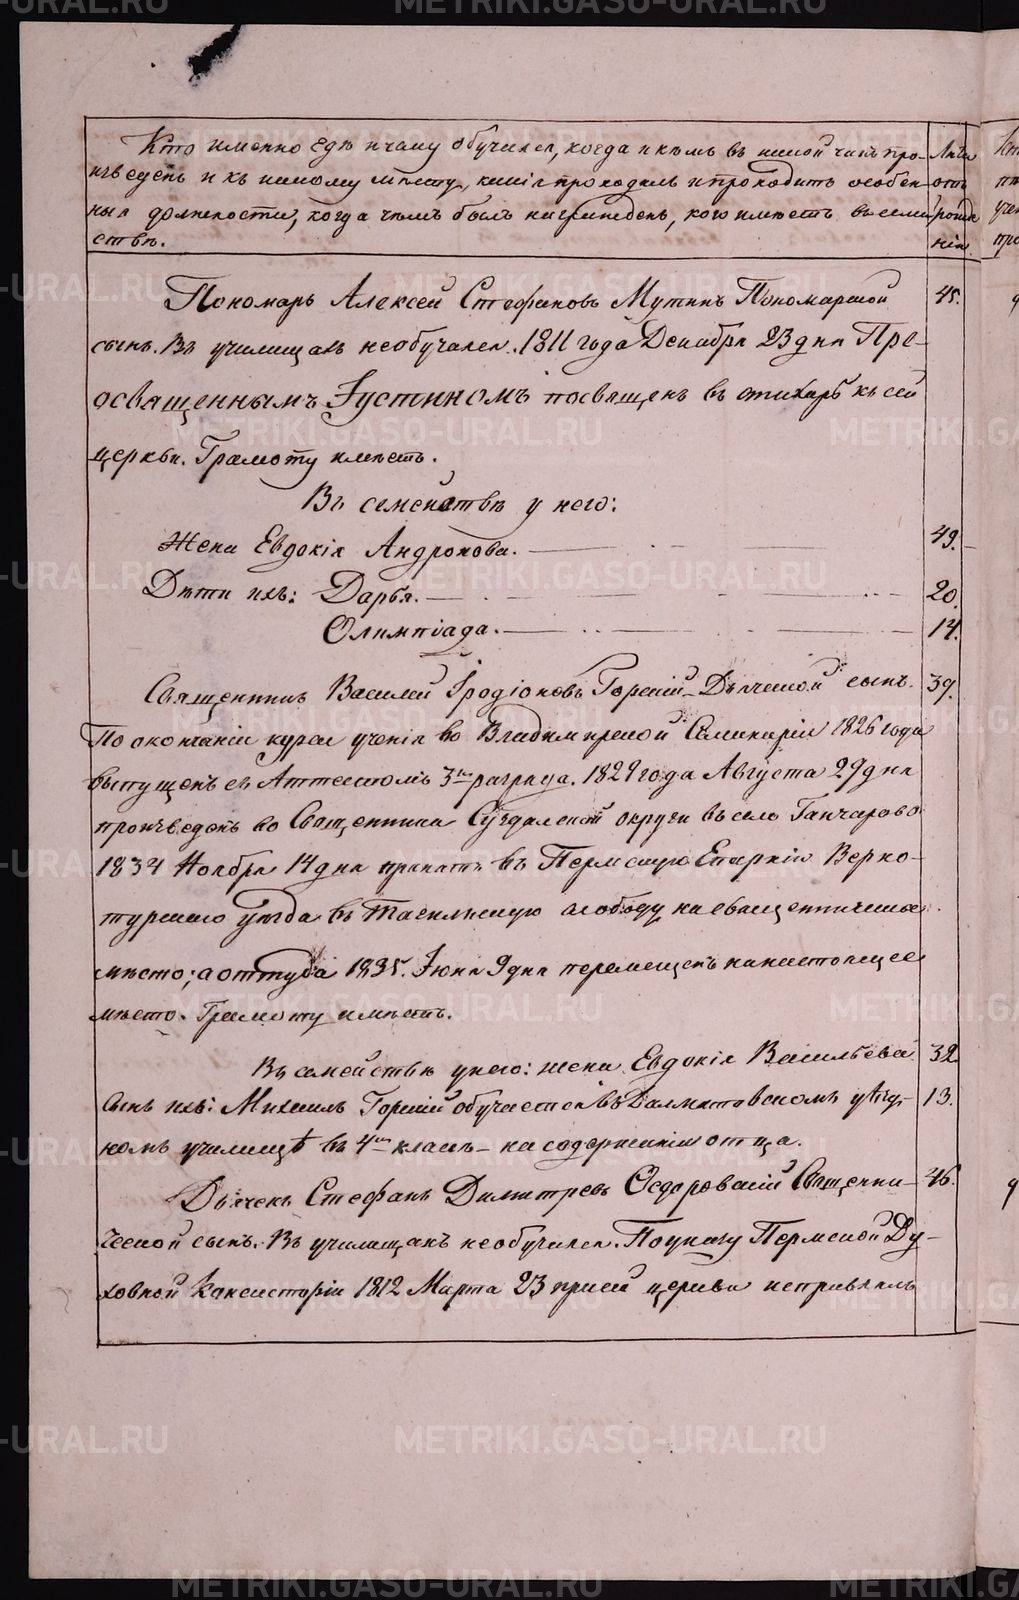 Кто именно гдѣ и чему обучался, когда и кѣмъ въ какой чинъ про-
изведенъ и къ какому мѣсту, какія проходилъ и проходитъ особен-
ныя должности, когда чѣмъ былъ награжденъ, кого имѣетъ въ семе
ствѣ.
Лѣта
отъ
рожде
нія
Пономарь Алексей Стефановъ Мутинъ Пономарской 45.
сынъ. Въ училищахъ необучался. 1811 года Декабря 23 дня Пре-
освященнымъ Іустиномъ посвященъ въ стихарь къ сей
церкви. Грамоту имѣетъ.
Въ семействѣ у него:
Жена Евдокія Андронова. 49.
Дѣти ихъ: Дарья. 20.
Олимпіада. 14.
Священникъ Василей Іродіоновъ Горскій Дьяческой сынъ. 39.
По окончаніи курса ученія во Владимирской Семинаріи 1826 года
выпущенъ съ Аттестомъ 3го разряда. 1829 года Августа 29 дня
произведенъ во Священника Суздальской округи въ село Ганчарово
1834 Ноября 14 дня принятъ въ Пермскую Епархію Верхо-
турскаго уѣзда въ Тагильскую слободу на священническое
мѣсто; а оттуда 1835. Іюня 9 дня перемещенъ на настоящее
мѣсто. Грамоту имѣетъ.
Въ семействѣ у него: жена Евдокія Васильева 32
Сынъ ихъ: Михаилъ Горскій обучается въ Далматовскомъ уѣзд- 13.
номъ училищѣ въ 4мъ класѣ на содержаніи отца.
Дьячекъ Стефанъ Димитревъ Ѳедоровскій Священни- 46.
ческой сынъ. Въ училищахъ необучался. По указу Пермской Ду-
ховной Консисторіи 1812 Марта 23 при сей церкви исправлялъ
METRIKI.GASO-URAL.RU